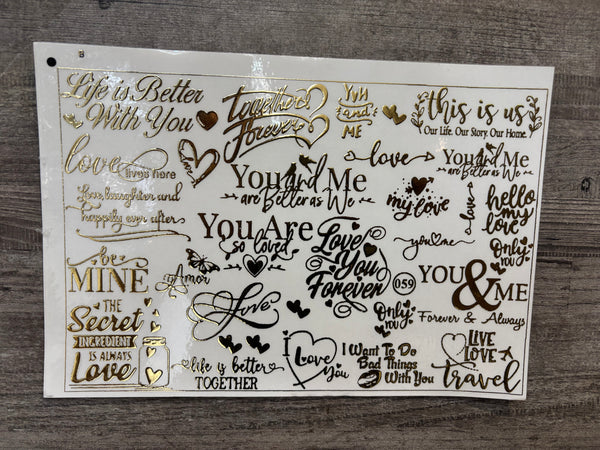 Life is Better
With You
together
Forever
You
and
ME
this is us
Our Life. Our Story. Our Home.
love
lives here
love
love
You And Me
are Better as We
You and Me
are Better as We
Love, laughter and
happily ever after
my love
love
hello
my
love
You Are
so loved
Love
You
Forever
you me
Only
you
be
MINE
Amor
059
YOU & ME
Forever & Always
Love
Only
you
THE
Secret
INGREDIENT
IS ALWAYS
Love
life is better
TOGETHER
I
Love
You
I Want To Do
Bad Things
With You
LIVE
LOVE
travel